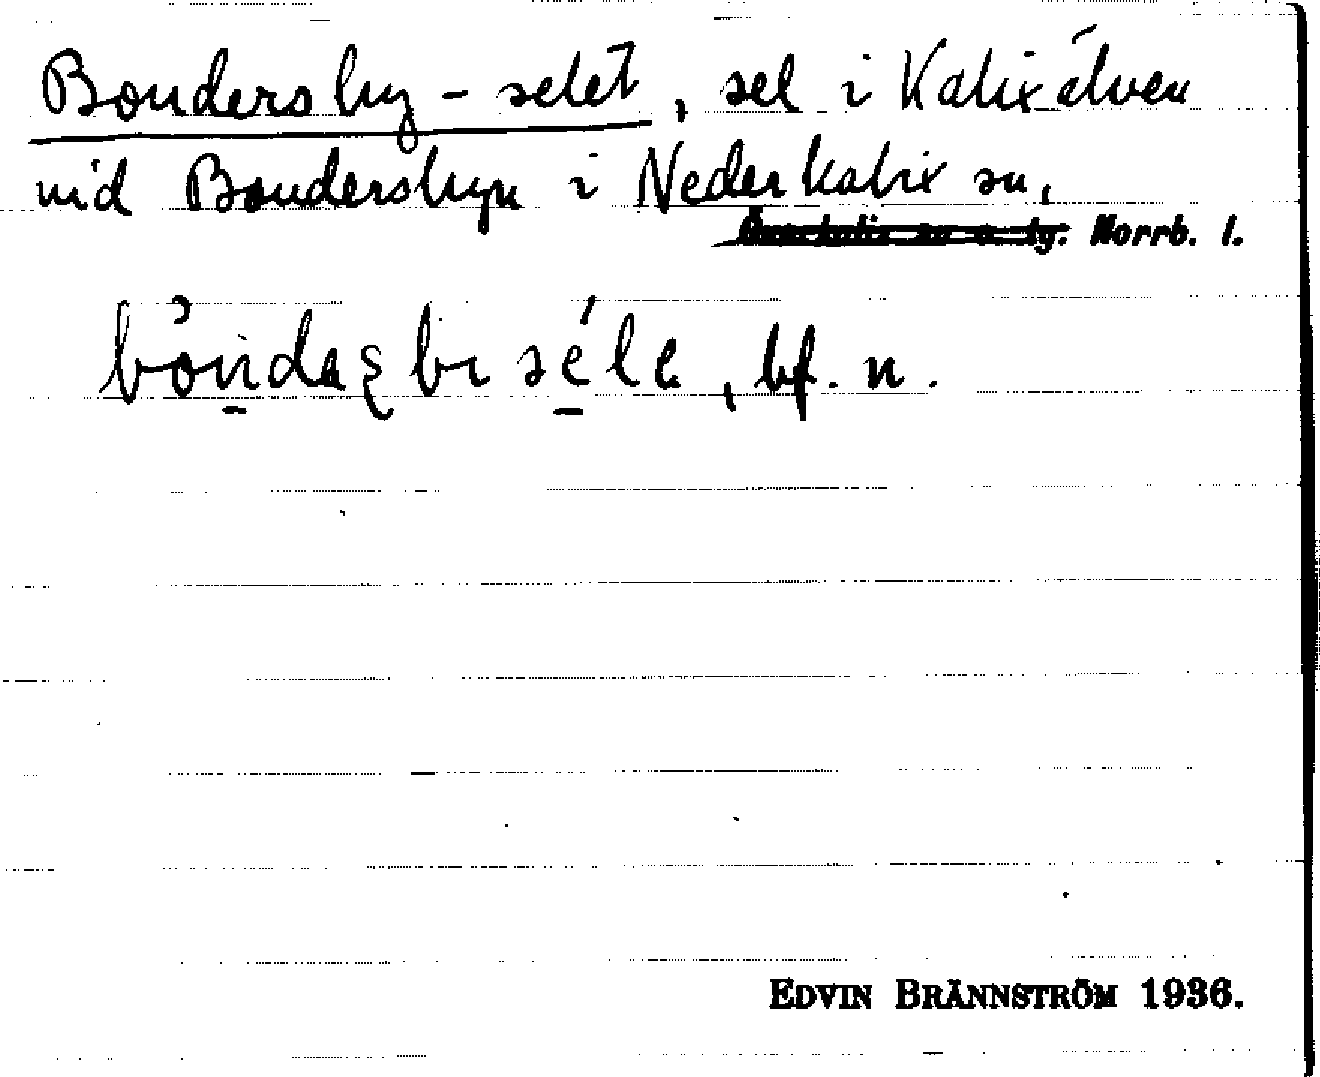 Bondersby-selet, sel i Kalixälven
vid Bondersbyn i Nederkalix sn,
Överkalix sn o. tg. Norrb. l.
bf. n.
EDVIN BRÄNNSTRÖM 1936.